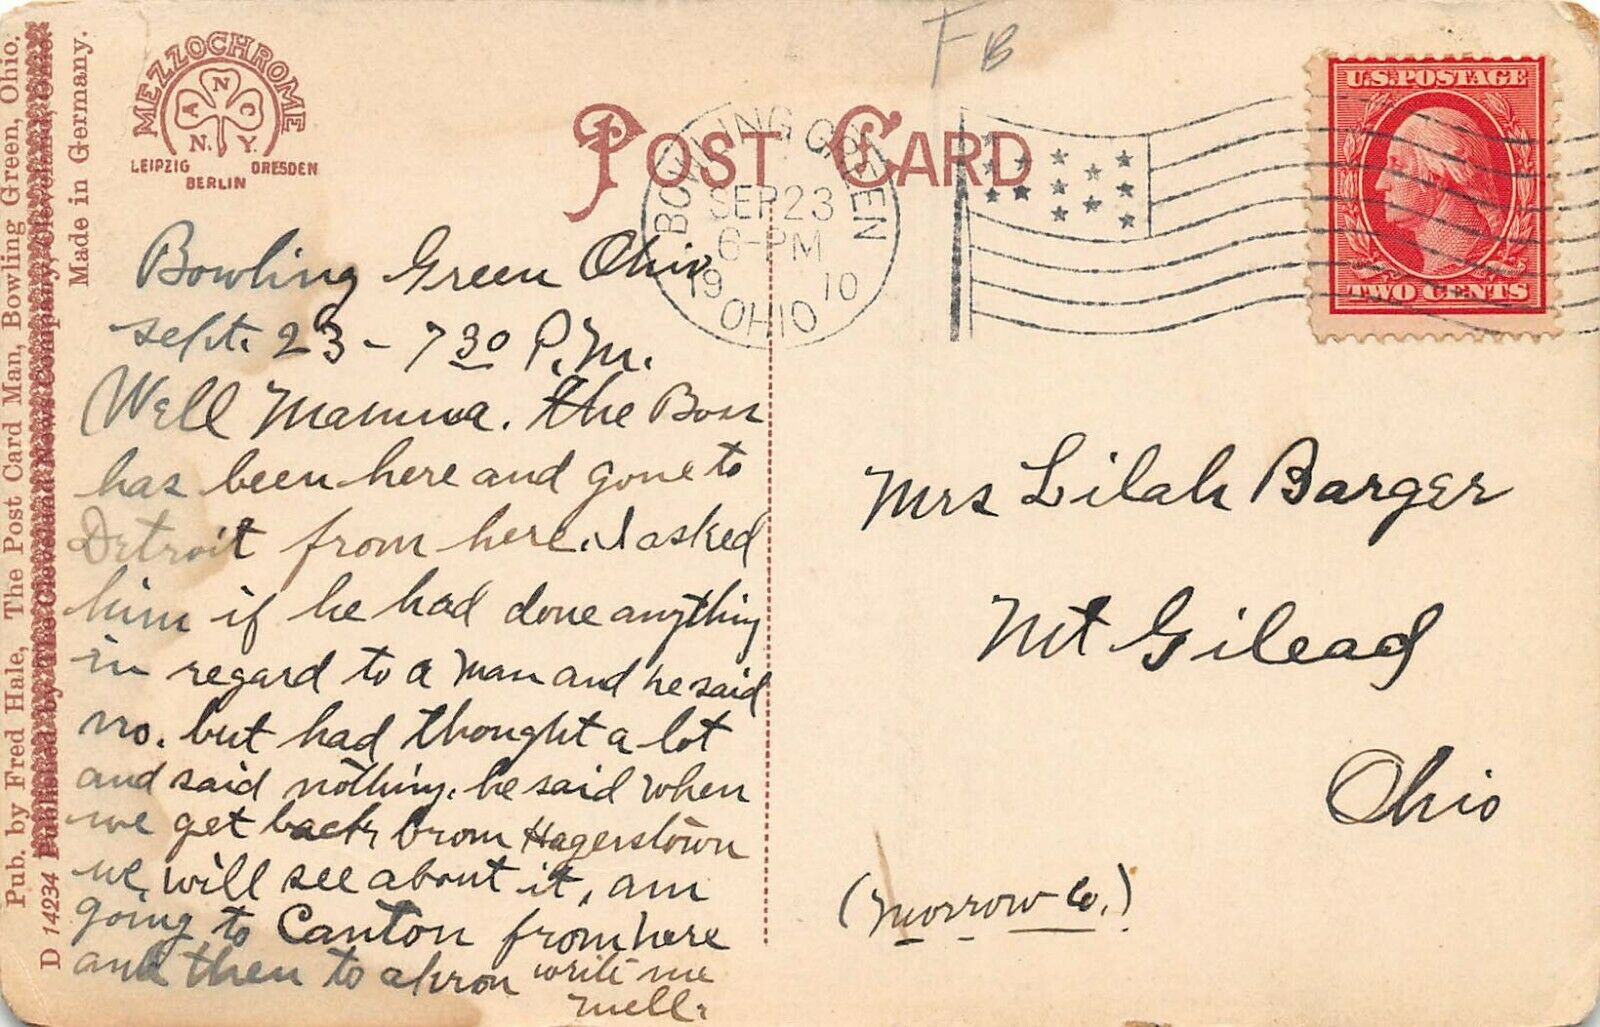 Pub. by Fred Hale, The Post Card Man, Bowling Green, Ohio.
D 14234 Published by The Cleveland News Company, Cleveland, Ohio.
Made in Germany.
MEZZOCHROME
A N C
N. Y.
LEIPZIG DRESDEN
BERLIN
FB
POST CARD
BOWLING GREEN
SEP 23
6-PM
1910
OHIO
U.S. POSTAGE
TWO CENTS
Bowling Green Ohio
Sept. 23 - 7 30 P.M.
Well Mamma. the Boss
has been here and gone to
Detroit from here. I asked
him if he had done anything
in regard to a man and he said
no. but had thought a lot
and said nothing. he said when
we get back from Hagerstown
we will see about it, am
going to Canton from here
and then to akron write me
nell.
Mrs Lilah Barger
Mt Gilead
Ohio
(Morrow Co.)